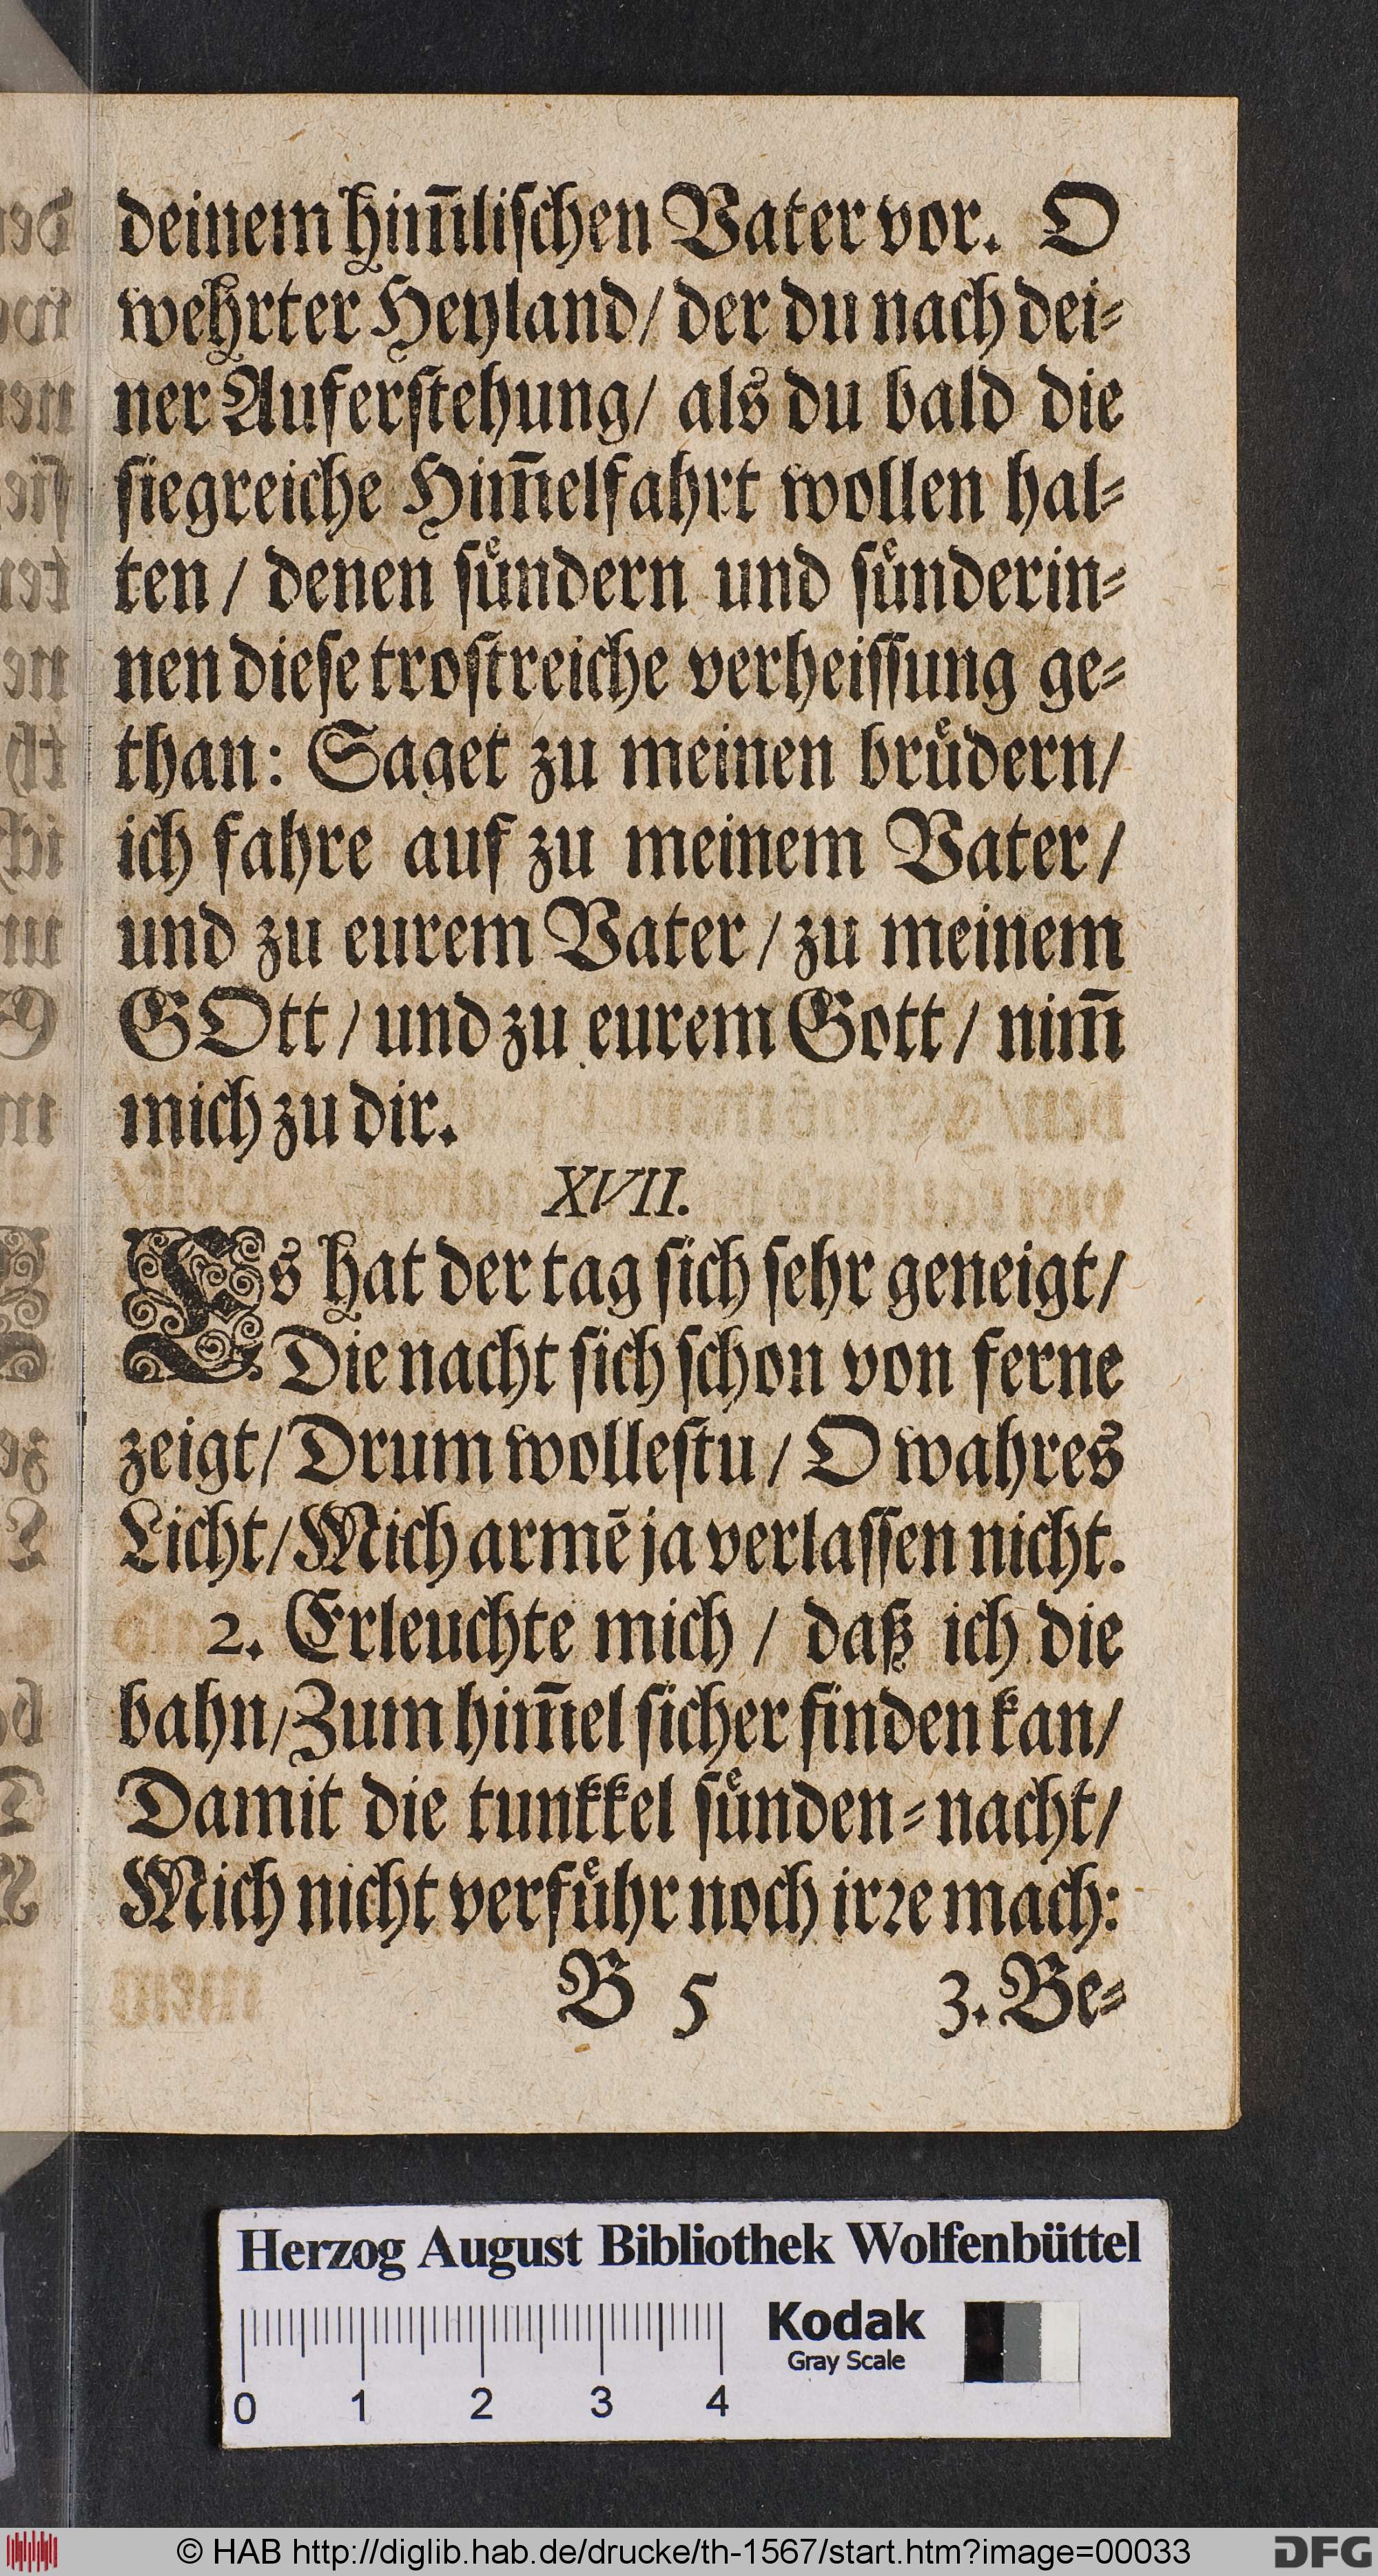 deinem him̅lischen Vater vor. O
wehrter Heyland/ der du nach dei⸗
ner Auferstehung/ als du bald die
siegreiche Him̅elfahrt wollen hal⸗
ten / denen suͤndern und suͤnderin⸗
nen diese trostreiche verheissung ge⸗
than: Saget zu meinen bruͤdern/
ich fahre auf zu meinem Vater/
und zu eurem Vater / zu meinem
GOtt / und zu eurem Gott / nim̅
mich zu dir.
XVII.
Es hat der tag sich sehr geneigt/
Die nacht sich schon von ferne
zeigt/ Drum wollestu / O wahres
Licht/ Mich armē ja verlassen nicht.
2. Erleuchte mich / daß ich die
bahn/ Zum him̅el sicher finden kan/
Damit die tunkkel suͤnden⸗nacht/
Mich nicht verfuͤhr noch irꝛe mach:
B 5 3. Be⸗
Herzog August Bibliothek Wolfenbüttel
Kodak
Gray Scale
0 1 2 3 4
© HAB http://diglib.hab.de/drucke/th-1567/start.htm?image=00033
DFG